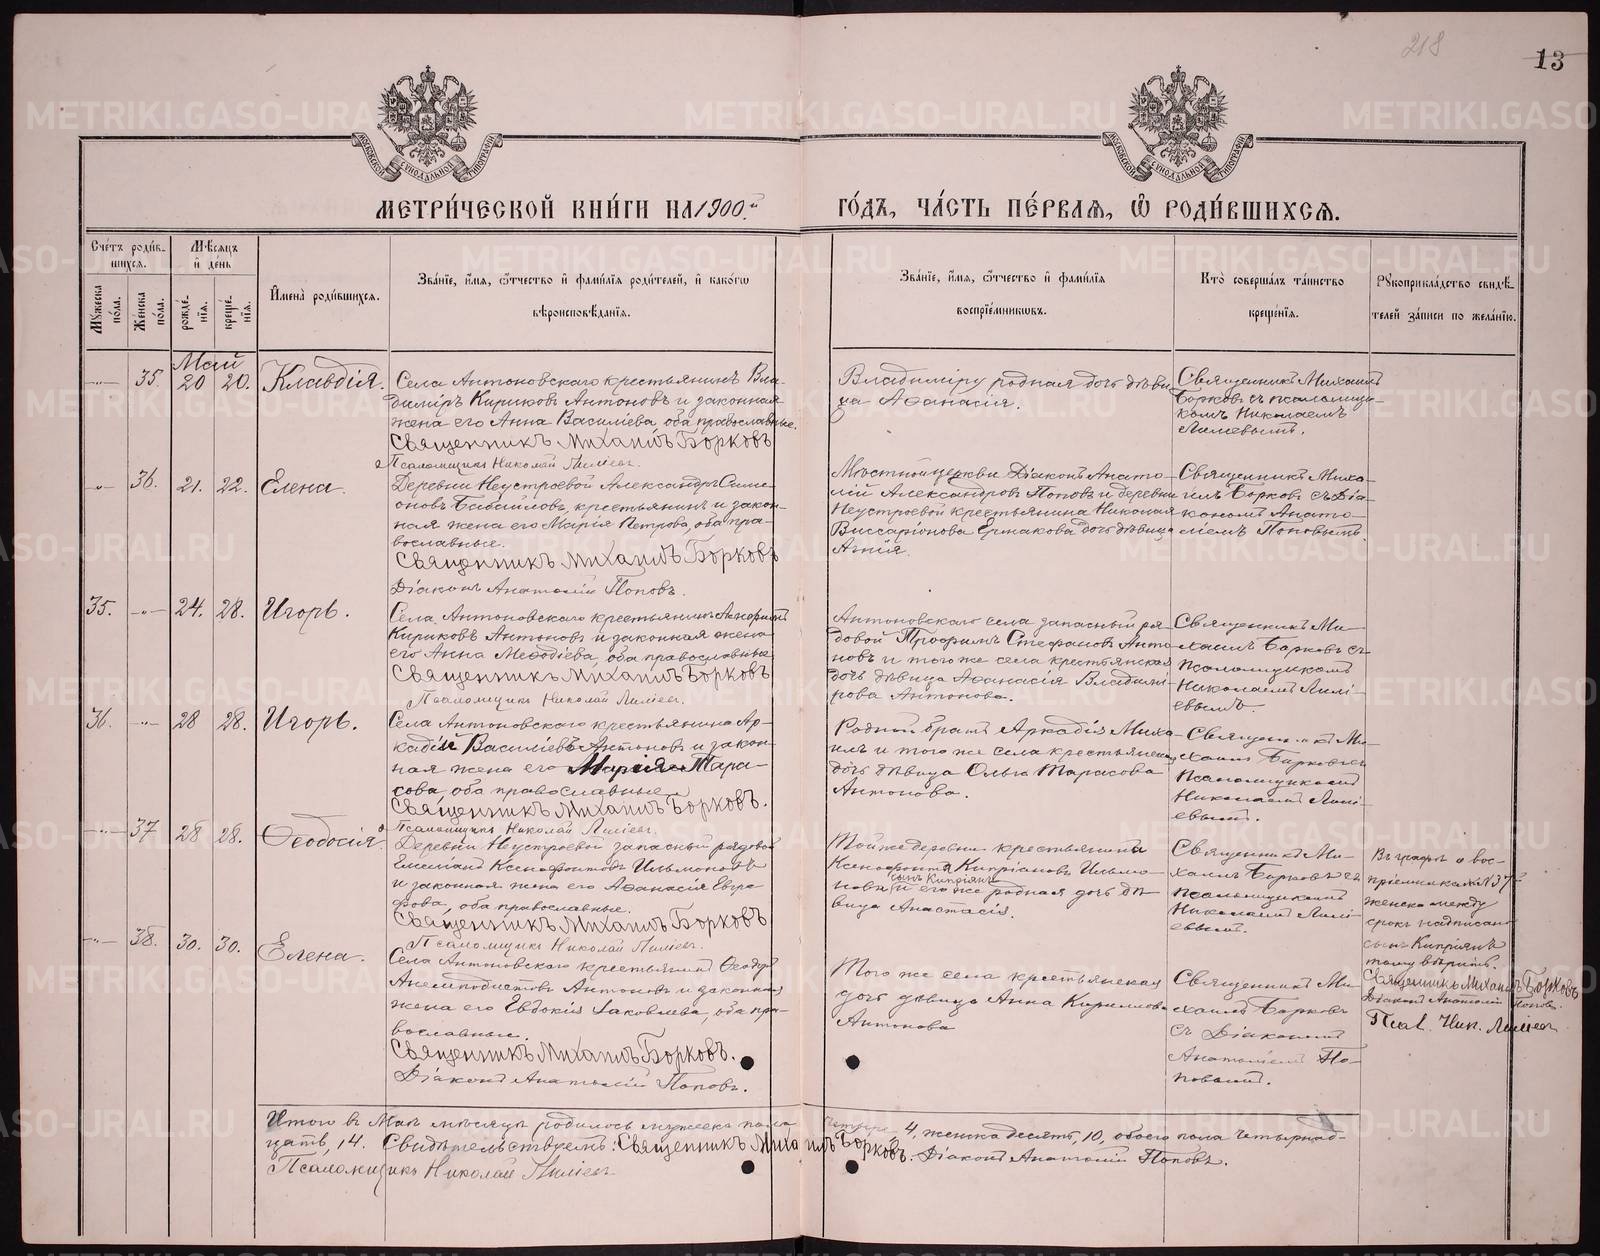 218
13
МЕТРИ́ЧЕСКОЙ КНИ́ГИ НА 1900.й
ГО́ДЪ, ЧА́СТЬ ПЕ́РВАЯ, Ѡ РОДИ́ВШИХСЯ.
Сче́тъ роди́в-
шихся.
Мѣсяцъ
и де́нь
Мꙋжеска по́ла.
Же́нска по́ла.
рожде́-
нїя.
креще́-
нїя.
И҆мена̀ роди́вшихся.
Зва́нїе, и҆́мя, ѻ҆́тчество и҆ фами́лїя роди́телей, и҆ како́гѡ
вѣроисповѣ́данїя.
Зва́нїе, и҆́мя, ѻ҆́тчество и҆ фами́лїя
воспрїе́мникѡвъ.
Кто̀ соверша́лъ та́инство
креще́нїя.
Рꙋкоприкла́дство свидѣ́-
телей за́писи по жела́нїю.
Май
35. 20 20. Клавдія.
Села Антоновскаго крестьянинъ Вла-
димiръ Кириковъ Антоновъ и законная
жена его Анна Василіева, оба православные.
Священникъ Михаилъ Борковъ
Псаломщикъ Николай Лиліевъ.
Владиміру родная дочь дѣви
ца Аѳанасія.
Священникъ Михаилъ
Борковъ съ псаломщи-
комъ Николаемъ
Лиліевымъ.
36. 21. 22. Елена.
Деревни Неустроевой Александръ Симе-
оновъ крестьянинъ и закон-
ная жена его Марія Петрова, оба пра-
вославные.
Священникъ Михаилъ Борковъ
Діаконъ Анатолій Поповъ.
Мѣстной церкви Діаконъ Анато-
лій Александровъ Поповъ и деревни
Неустроевой крестьянина Николая
Виссаріонова Ермакова дочь дѣвица
Агнія.
Священникъ Миха-
илъ Борковъ съ Діа-
кономъ Анато-
ліемъ Поповымъ.
35. 24. 28. Игорь.
Села Антоновскаго крестьянинъ
Кириковъ Антоновъ и законная жена
его Анна Меѳодіева, оба православные
Священникъ Михаилъ Борковъ
Псаломщикъ Николай Лиліевъ.
Антоновскаго села запасный ря-
довой Трофимъ Стефановъ Анто-
новъ и того же села крестьянская
дочь дѣвица Аѳанасія Владимі-
рова Антонова.
Священникъ Ми-
хаилъ Борковъ съ
Псаломщикомъ
Николаемъ Лилі-
евымъ.
36. 28 28. Игорь.
Села Антоновскаго крестьянина Ар-
кадій Василіевъ Антоновъ и закон-
ная жена его Марія Тара-
сова, оба православные
Священникъ Михаилъ Борковъ.
Псаломщикъ Николай Лиліевъ.
Родной братъ Аркадія Миха-
илъ и того же села крестьянска
дочь дѣвица Ольга Тарасова
Антонова.
Священникъ Ми-
хаилъ Борковъ съ
Псаломщикомъ
Николаемъ Лилі-
евымъ.
37 28 28. Ѳеодосія
Деревни Неустроевой запасный рядовой
Емеліанъ Ксенофонтовъ Ильмоновъ
и законная жена его Аѳанасія Евгра-
фова, оба православные.
Священникъ Михаилъ Борковъ
Псаломщикъ Николай Лиліевъ.
Той же деревни крестьянинъ
Ксенофонта Кипріановъ Ильмо-
сынъ Кипріянъ
новъ и его же родная дочь дѣ-
вица Анастасія.
Священникъ Ми-
хаилъ Борковъ съ
псаломщикомъ
Николаемъ Лилі-
евымъ.
Въ графѣ о вос-
пріемникахъ № 37
женска между
срокъ надписано
сынъ Кипріянъ
тому вѣрить.
Священникъ Михаилъ Борковъ
Діаконъ Анатолій Поповъ.
Псал. Ник. Лиліевъ
38. 30. 30. Елена.
Села Антоновскаго крестьянинъ Ѳеодоръ
Анемподистовъ Антоновъ и законная
жена его Евдокія Іаковлева, оба пра-
вославные.
Священникъ Михаилъ Борковъ.
Діаконъ Анатолій Поповъ.
Того же села крестьянская
дочь дѣвица Анна Кириллова
Антонова
Священникъ Ми-
хаилъ Борковъ
съ Діакономъ
Анатоліемъ По-
повымъ.
Итого въ Маѣ мѣсяцѣ родилось мужеска пола четыре 4, женска десять, 10, обоего пола четырнад-
цать, 14. Свидѣтельствуемъ: Священникъ Михаилъ Борковъ. Діаконъ Анатолій Поповъ.
Псаломщикъ Николай Лиліевъ
METRIKI.GASO-URAL.RU